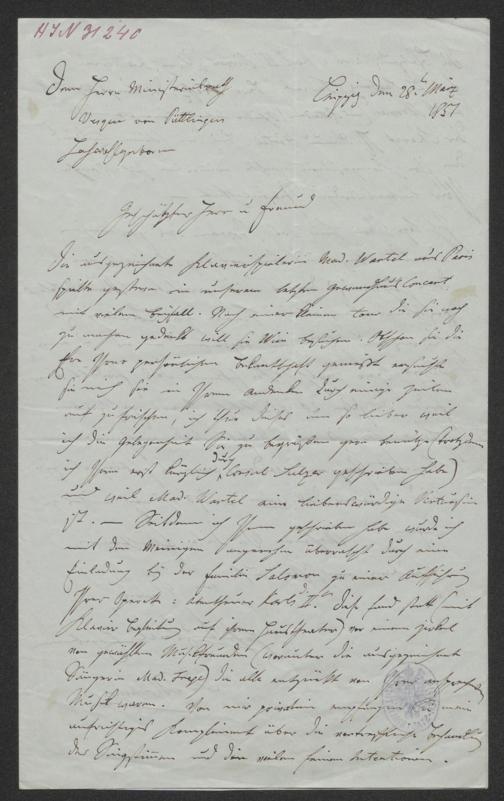 HIN 31240
Dem Herrn Ministerialrath
Vesque von Püttlingen
Hochwohlgeboren
Leipzig den 28. März
1851
Geschätzter Herr u Freund
Die ausgezeichnete Klavierspielerin Mad. Wartel aus Paris
spielte gestern in unserem letzten Gewandhaus Concert
mit vielem Beifall. Nach einer kleinen tour die sie noch
zu machen gedenkt will sie Wien besuchen. Obschon sie die
Ehre Ihrer persönlichen Bekanntschaft genießt ersuchte
sie mich sie in Ihrem Andenken durch einige Zeilen
aufzufrischen, ich thue dieses um so lieber weil
ich die Gelegenheit Sie zu begrüßen gern benutze (trotzdem
ich Ihnen erst kürzlich durch Consul Sulzer geschrieben habe)
und weil Mad. Wartel eine liebenswürdige Künstlerin
ist. — Seitdem ich Ihnen geschrieben habe wurde ich
mit den Meinigen angenehm überrascht durch eine
Einladung bei der Familie Salomon zu einer Aufführung
Ihrer Operette: Abentheuer Karls II. Diese fand statt (mit
Klavier Begleitung auf ihrem Haustheater) vor einem Zirkel
von gewählten Musikfreunden (worunter die ausgezeichnete
Sängerin Mad. Frege) die alle entzückt von Ihrer ansprechenden
Musik waren. Von mir privatim empfangen Sie mein
aufrichtiges Kompliment über die vortreffliche Behandlung
der Singstimmen und die vielen feinen Intentionen.